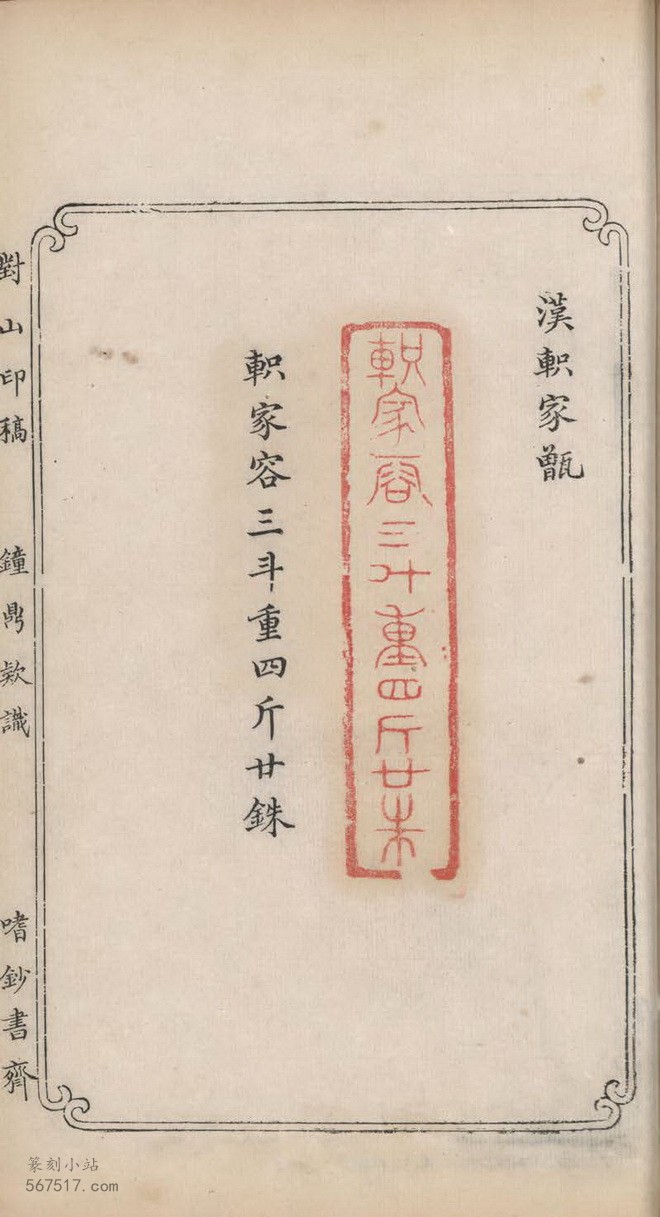 漢軹家甑
軹家容三斗重四斤廿朱
軹家容三斗重四斤廿銖
對山印稿 鐘鼎欵識 嗜鈔書齋
篆刻小站
567517.com